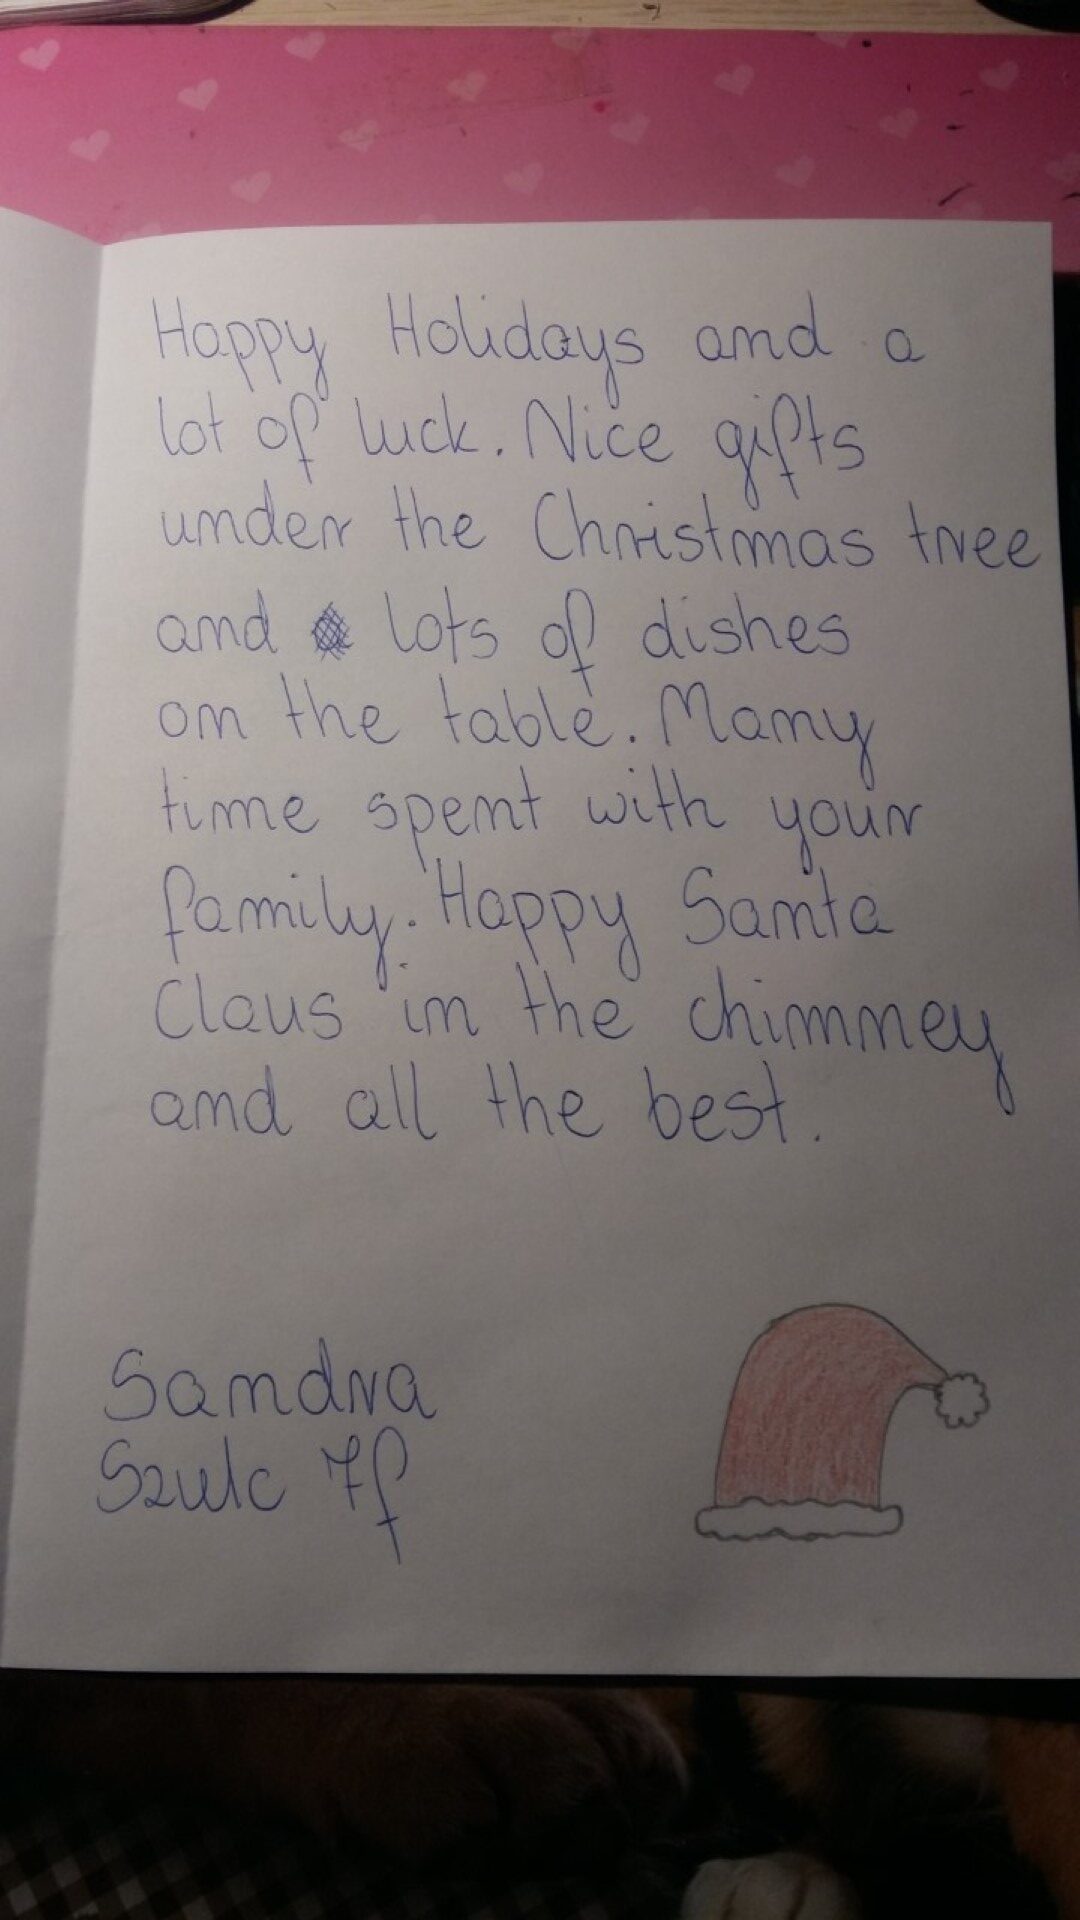 Happy Holidays and a
lot of luck. Nice gifts
under the Christmas tree
and lots of dishes
on the table. Many
time spent with your
family. Happy Santa
Claus in the chimney
and all the best.
Sandra
Szulc 7f